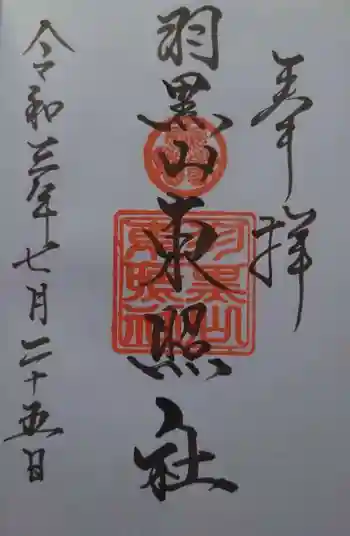 奉拝
羽黒山東照社
令和三年七月二十五日
羽黒山
東照社